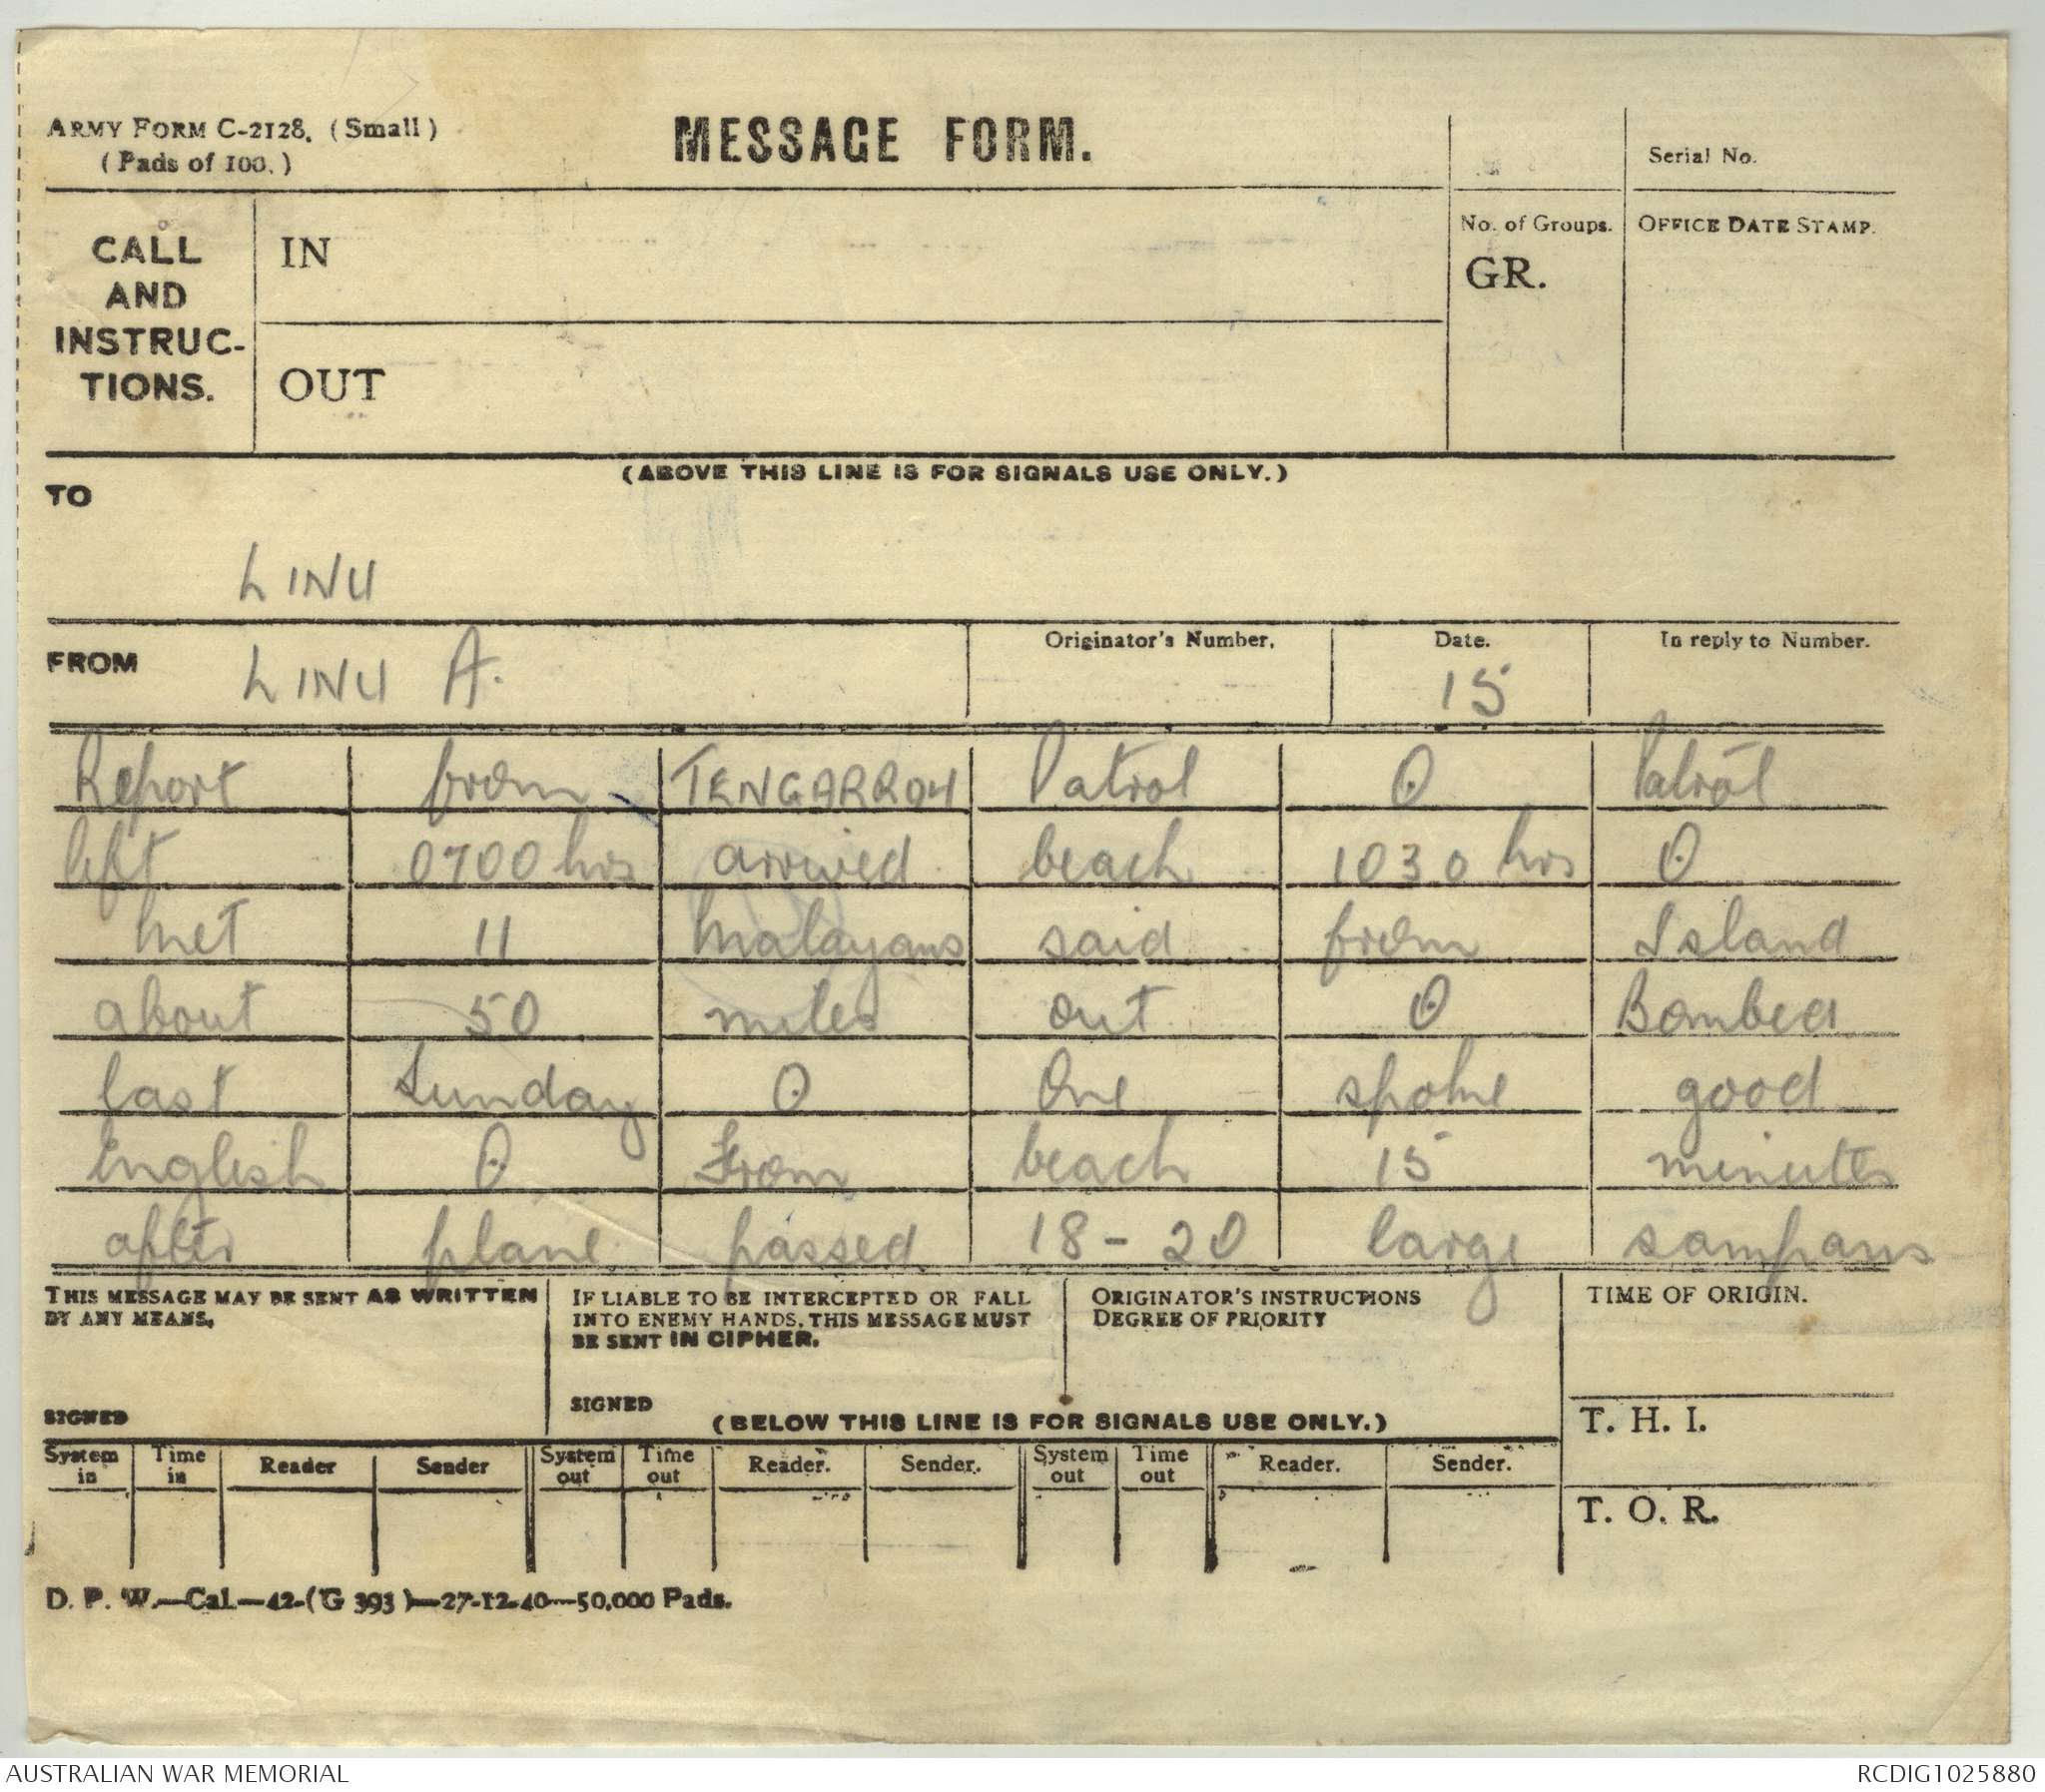 ARMY FORM C-2128. (Small)
(Pads of 100.)
MESSAGE FORM.
Serial No.
CALL
AND
INSTRUC-
TIONS.
IN
OUT
No. of Groups.
GR.
OFFICE DATE STAMP.
(ABOVE THIS LINE IS FOR SIGNALS USE ONLY.)
TO
LINU
FROM LINU A.
Originator's Number.
Date.
15
In reply to Number.
Report from Patrol O Patrol
left 0700 hrs arrived beach 1030 hrs O
met 11 Malayans said from Island
about 50 miles out O Bombed
last Sunday O One spoke good
English O From beach 15 minutes
after plane passed 18 - 20 large sampans
THIS MESSAGE MAY BE SENT AS WRITTEN
BY ANY MEANS.
SIGNED
IF LIABLE TO BE INTERCEPTED OR FALL
INTO ENEMY HANDS, THIS MESSAGE MUST
BE SENT IN CIPHER.
SIGNED
ORIGINATOR'S INSTRUCTIONS
DEGREE OF PRIORITY
TIME OF ORIGIN.
(BELOW THIS LINE IS FOR SIGNALS USE ONLY.)
T. H. I.
System in Time in Reader Sender System out Time out Reader. Sender. System out Time out Reader. Sender.
T. O. R.
D. P. W.—Cal.—42-(G 393)—27-12-40—50,000 Pads.
AUSTRALIAN WAR MEMORIAL
RCDIG1025880